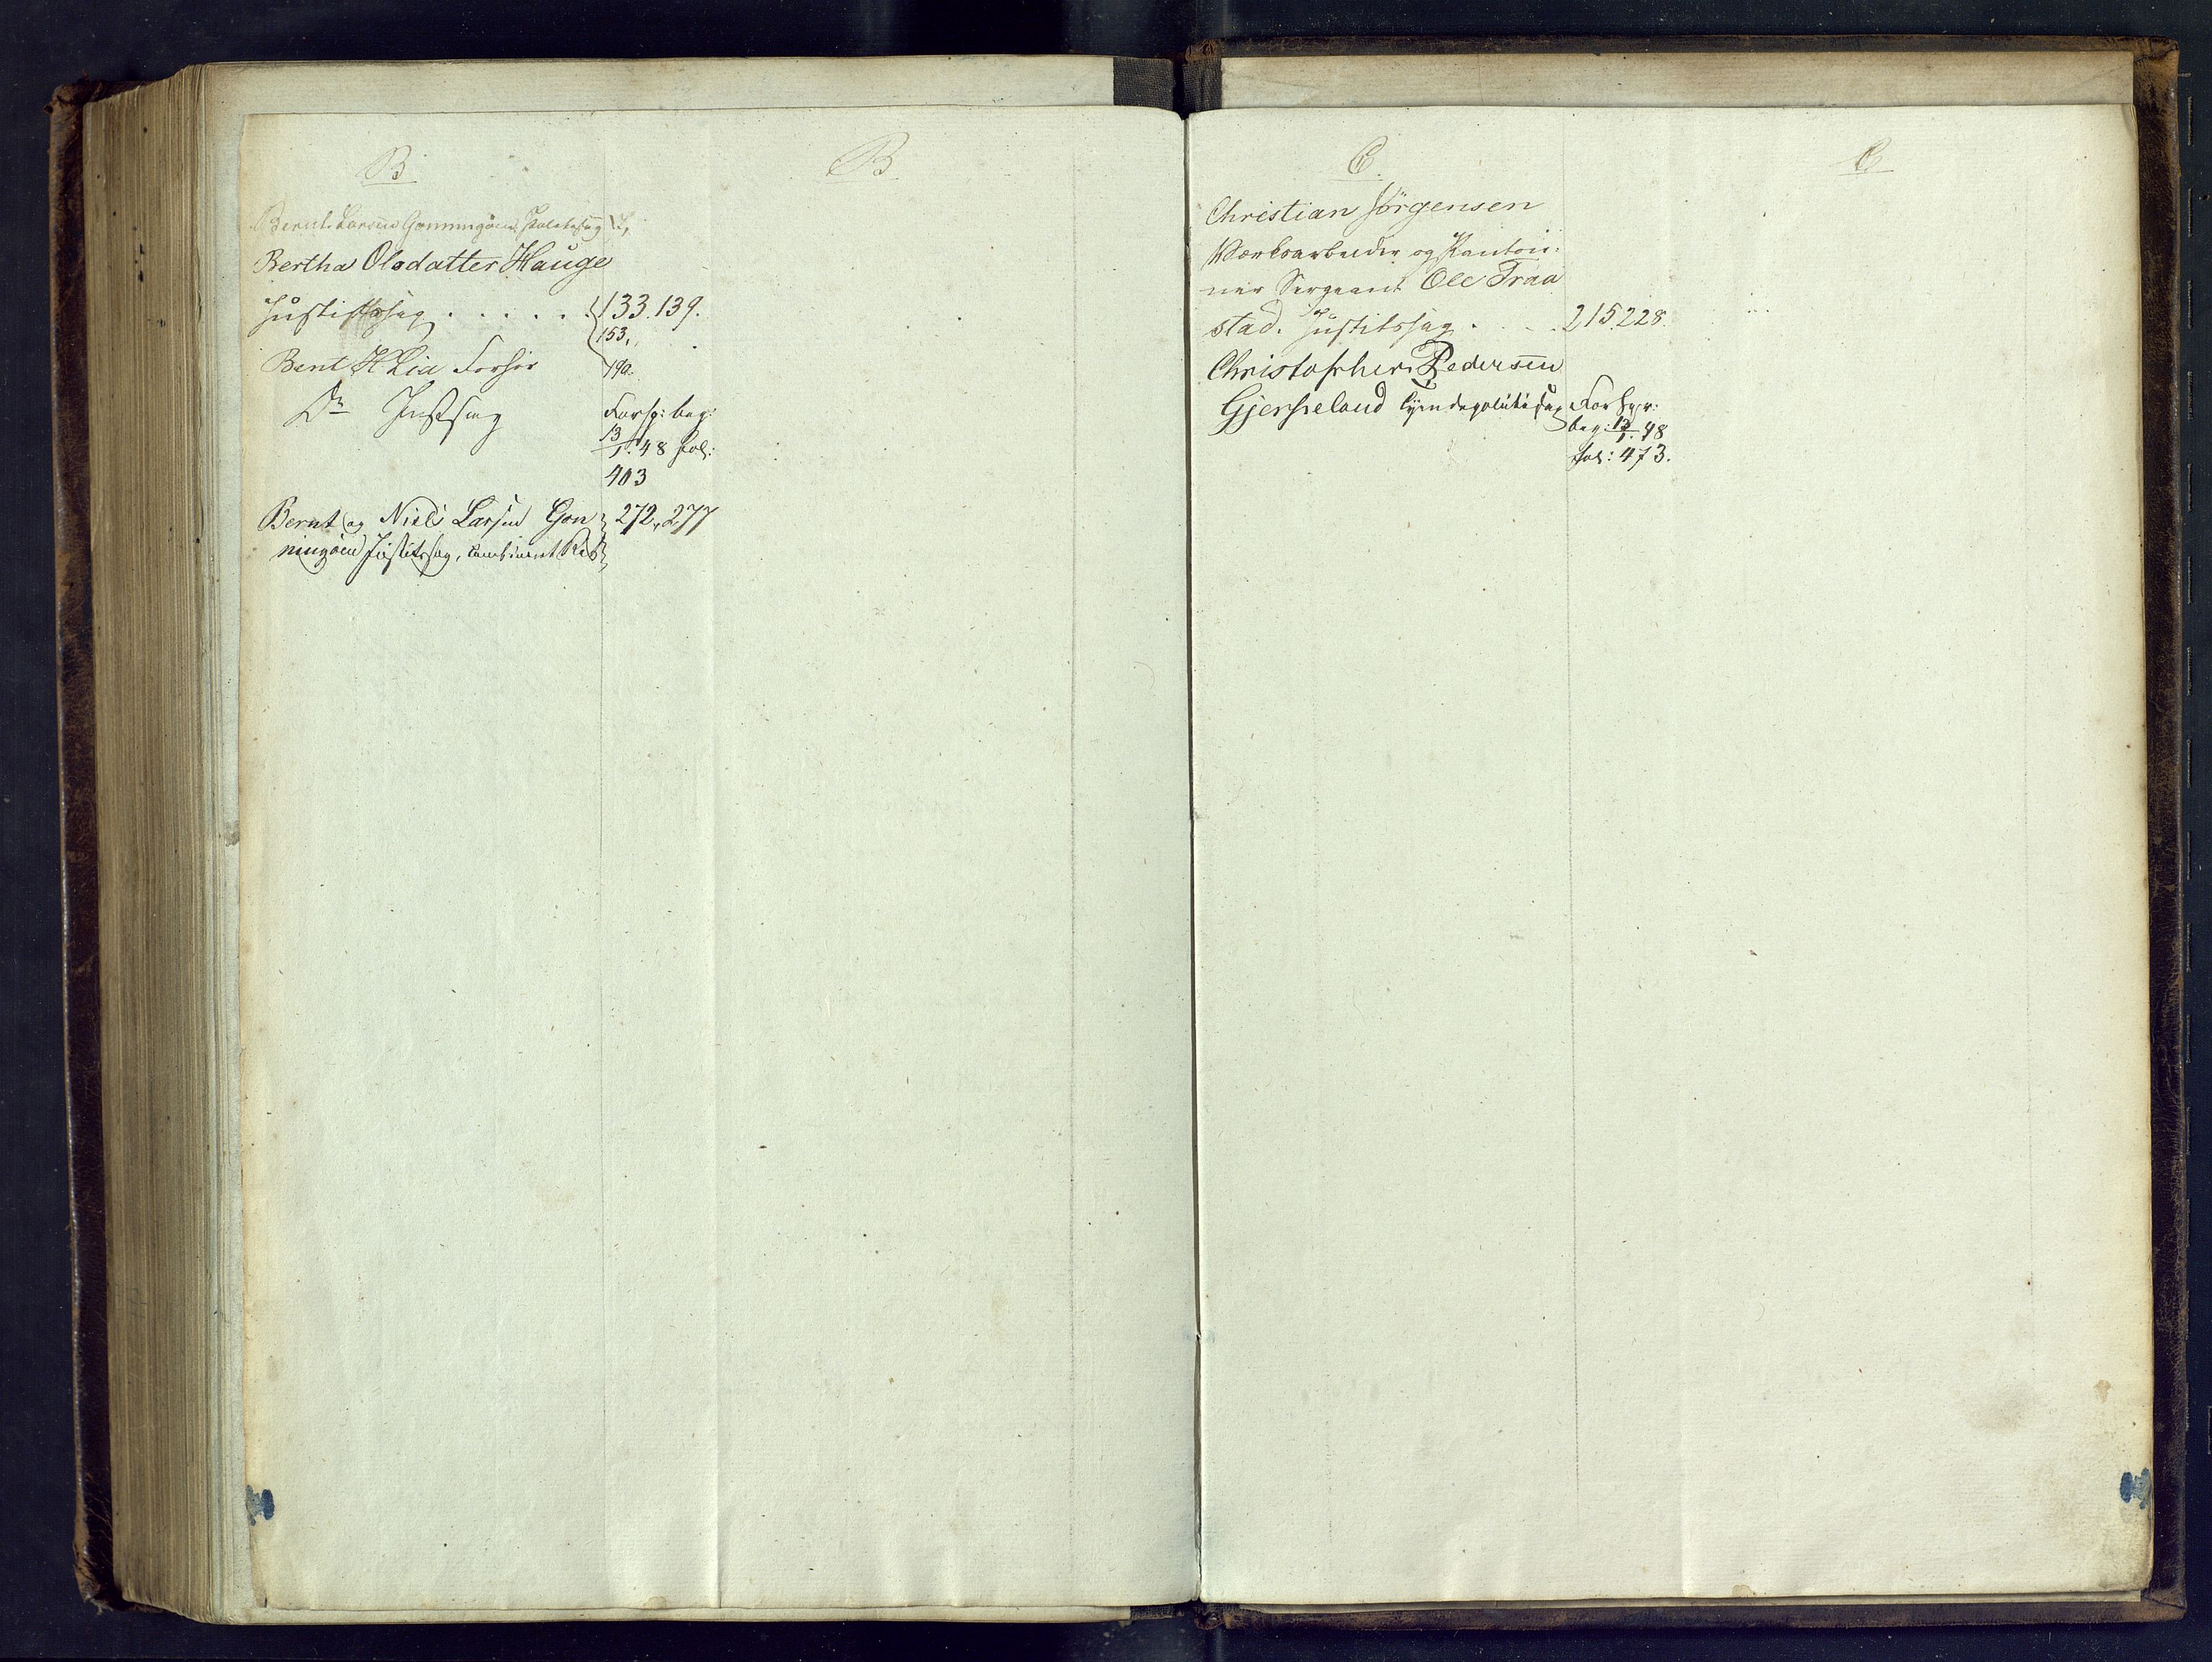 B
B
Bernt Larsen Gonningöens Politiesag 7,
Bertha Olsdatter Hauge
Justitssag . . . . . . 133.139.
153,
Bent H Lia Forhör 190.
Do Justssag Forhp: beg:
13/1. 48 fol:
403
Bernt og Niels Larsen Gon 272, 277
ningöen Justitssag, combineret Ret
C.
C
Christian Jörgensen
Værksarbeider og Kantoni:
ner Sergeant Ole Traa
stad. Justitssag . . . . 215.228.
Christopher Pedersen
Gjerseland Lyendepolitisag Forhpr:
beg: 13/1. 48
fol: 473.